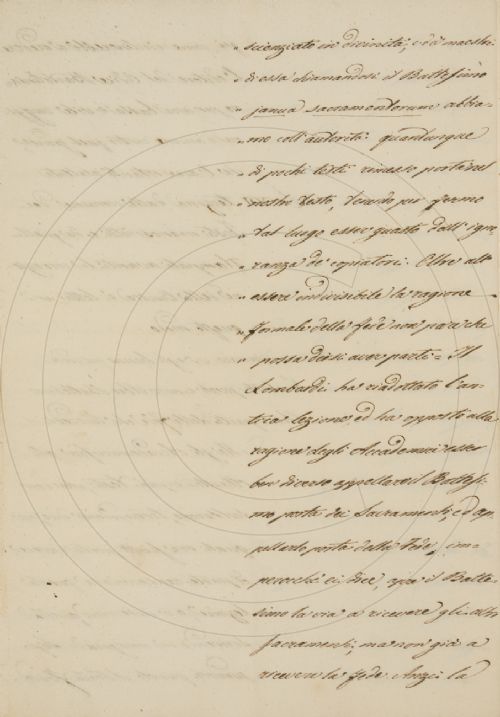 „ scienziato in divinità, e da maestri
„ di essa chiamandosi il Battesimo
„ janua sacramentorum abbia-
„ mo coll'autorità quantunque
„ di pochi testi rimesso porta nel
„ nostro testo, tenendo per fermo
„ tal luogo esser guasto dall'igno-
„ ranza de' copiatori. Oltre all'
„ essere indivisibile la ragione
„ formale della fede non pare che
„ possa dirsi aver parti = Il
Lombardi ha riadottato l'an-
tica lezione, ed ha opposto alla
ragione degli Accademici esser
ben diverso appellare il Battesi-
mo porta dei Sacramenti, ed ap-
pellarlo porta della Fede, im-
perocché ei dice, apre il Batte-
simo la via a ricevere gli altri
Sacramenti, ma non già a
ricever la fede. Anzi la